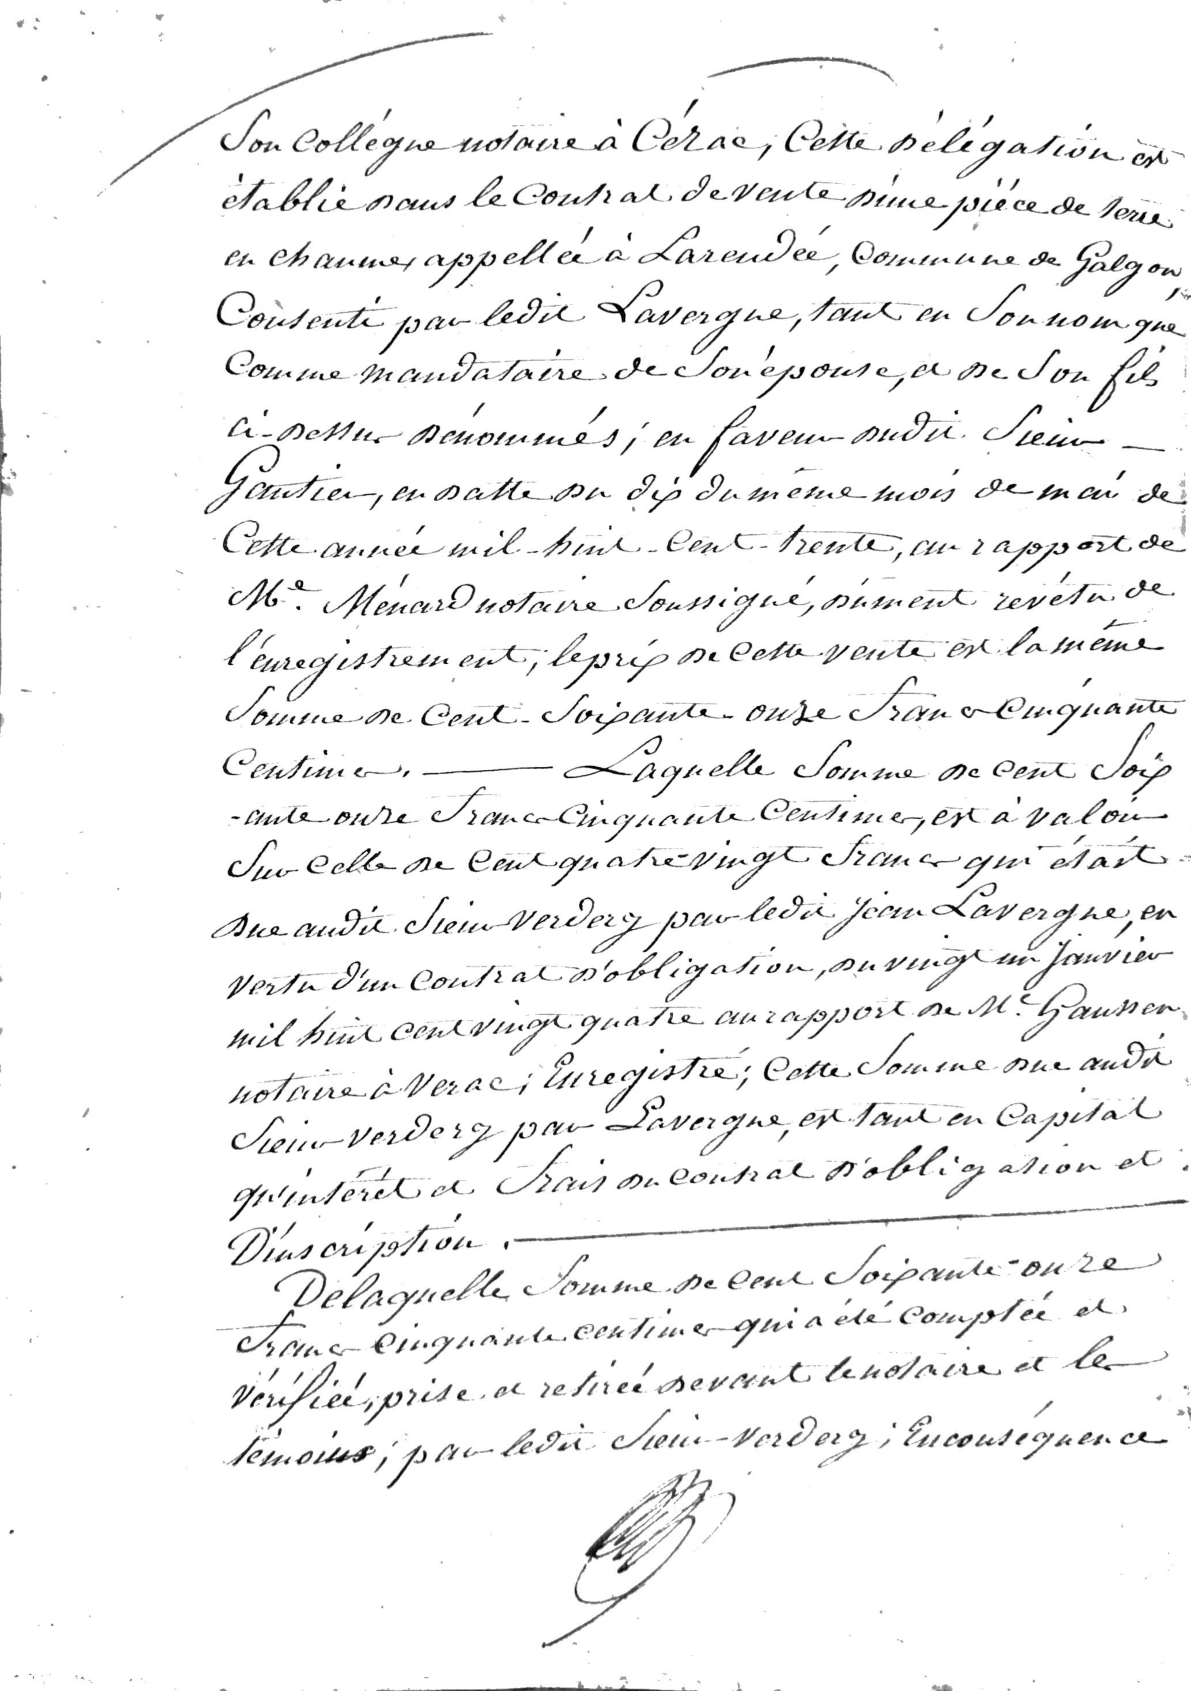 Son Collégue notaire à Cézac, Cette délégation est
établie dans le Contrat de vente d'une piéce de terre
en chaumes appellée à Larendée, Commune de Galgon,
Consenti par ledit Lavergne, tant en Son nom que
Comme mandataire de Son épouse, et de Son fils
ci-dessus dénommés; en faveur dudit Sieur —
Gautier, en datte du dix du même mois de mai de
Cette année mil-huit-Cent-trente, au rapport de
Me. Ménard notaire Soussigné, dûment revétu de
l'enregistrement; le prix de cette vente est la même
Somme de Cent-Soixante-onze Francs Cinquante
Centimes. — Laquelle Somme de Cent Soix
-ante onze Francs Cinquante Centimes, est à valoir
Sur Celle de Cent quatre vingt Francs qui était
due audit Sieur Verdery par ledit Jean Lavergne, en
vertu d'un Contrat d'obligation, du vingt un Janvier
mil huit cent vingt quatre au rapport de Me. Gaussen
notaire à Verac; Enregistré; Cette Somme due audit
Sieur Verdery par Lavergne, est tant en Capital
qu'intérêt et Frais du Contrat d'obligation et
D'inscription. —
Delaquelle Somme de Cent Soixante-onze
Francs Cinquante centimes qui a été Comptée et
vérifiée, prise et retirée devant le notaire et les
témoins; par ledit Sieur Verdery; En conséquence